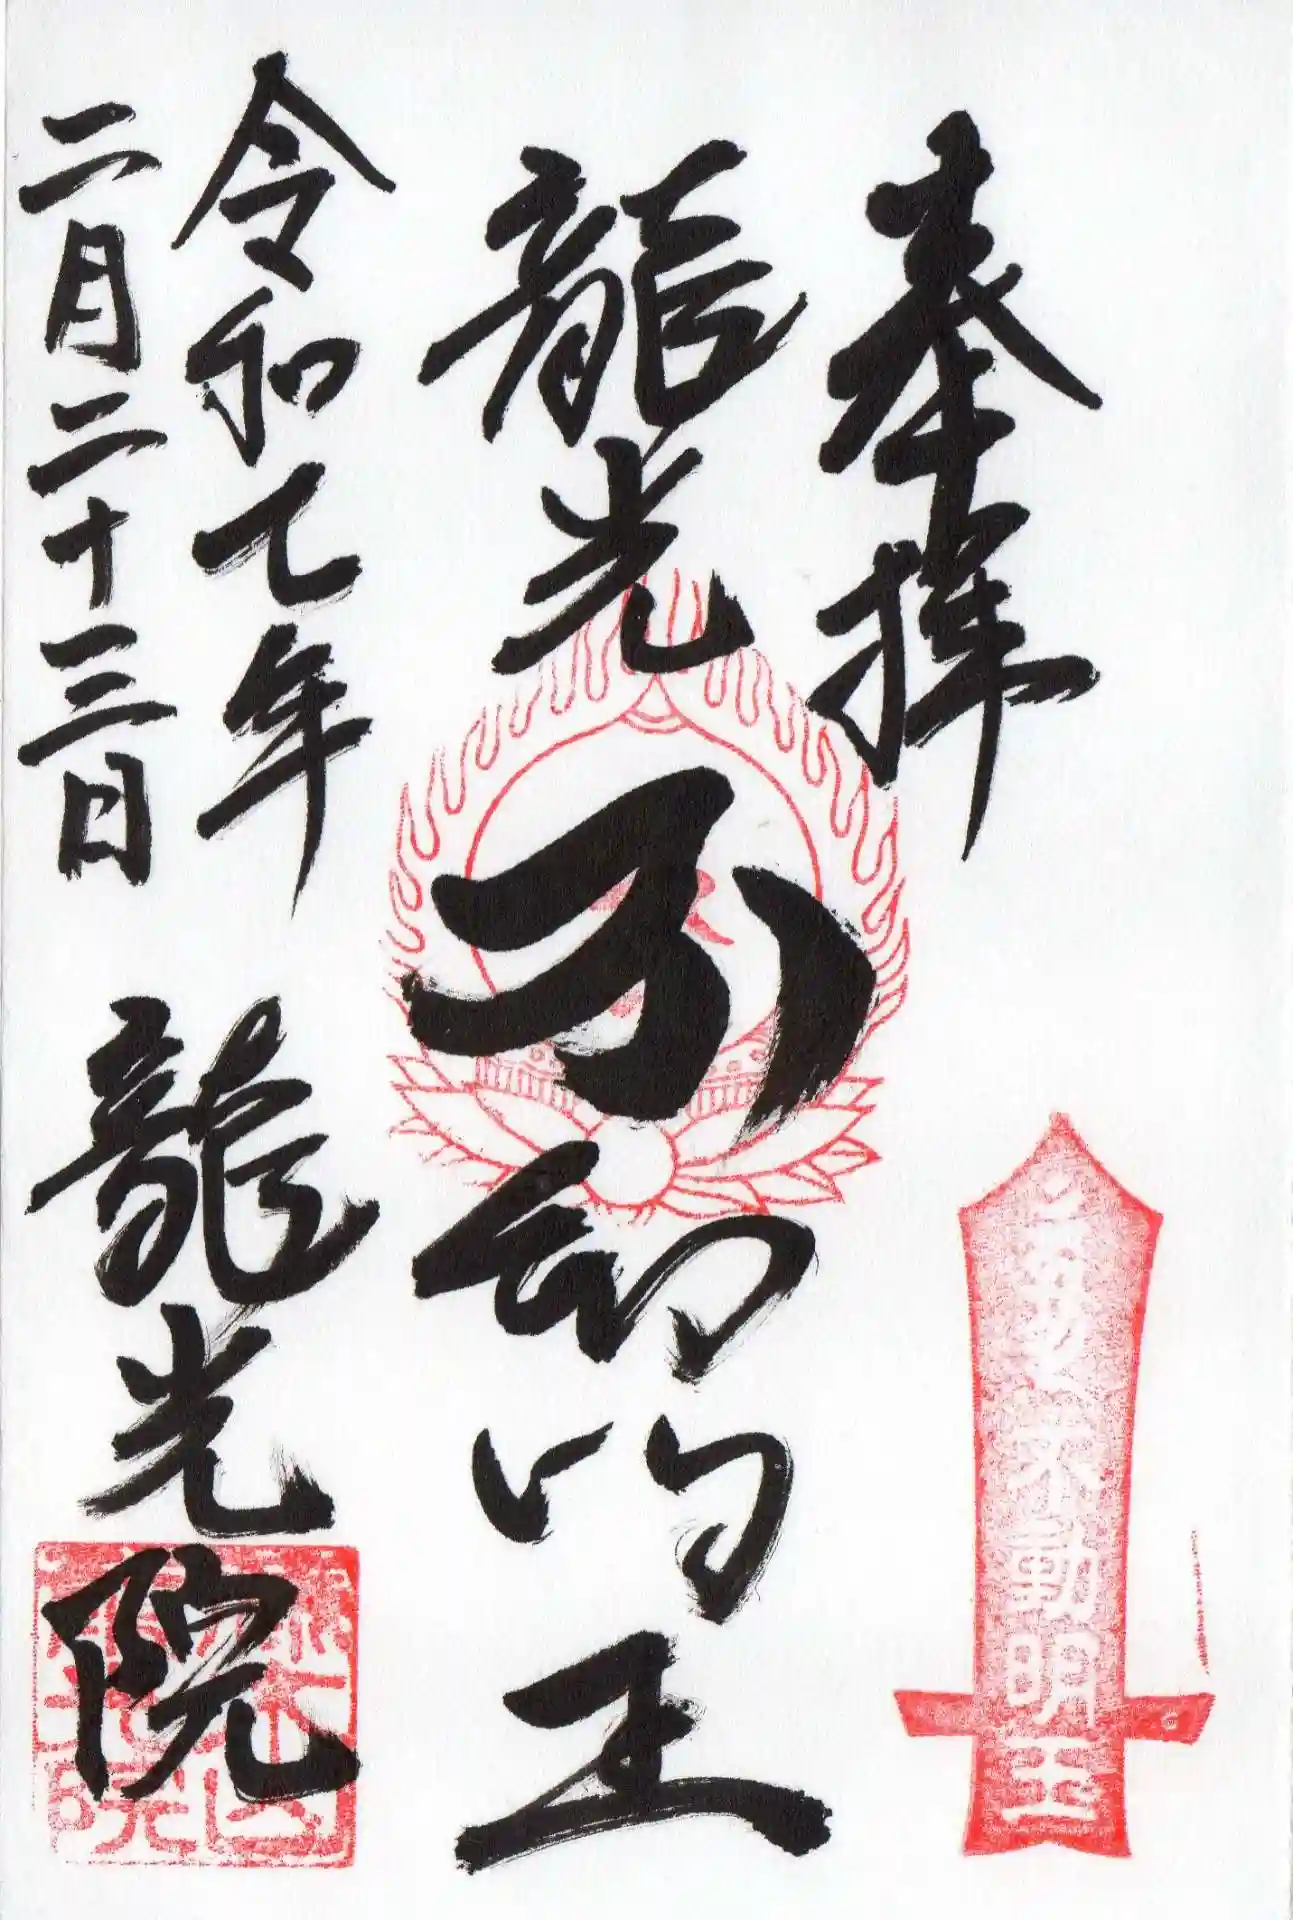 奉拝
龍光不動明王
令和七年
二月二十三日
龍光院
不動明王